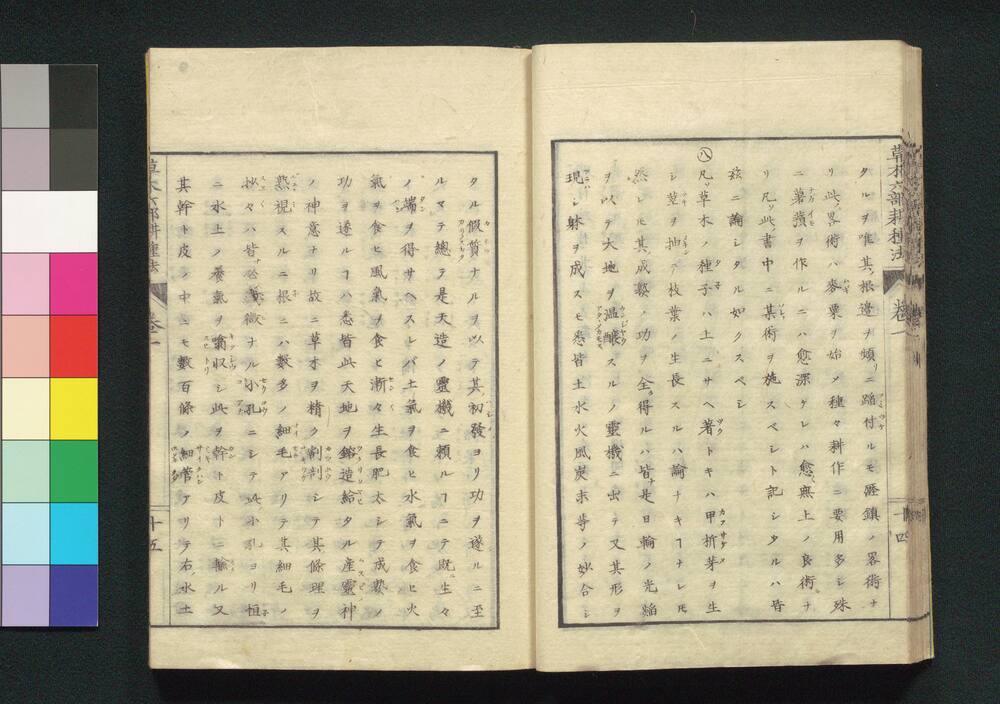 草木六部耕種法 巻一 十四
タルヲ唯其根邉ヲ頻リニ踏付ルモ壓鎮ノ畧術ナ
リ此畧術ハ麥粟ヲ始メ種々耕作ニ要用多シ殊
ニ薯蕷ヲ作ルニハ愈深ケレハ愈無上ノ良術ナ
リ凡ソ此書中ニ其術ヲ施スベシト記シタルハ皆
玆ニ論シタル如クスベシ
八 凡ソ草木ノ種子ハ土ニサヘ著トキハ甲折芽ヲ生
シ莖ヲ抽テ枝葉ノ生長スルハ論ナキヿナレモ
然レモ其成熟ノ功ヲ全ク得ルハ皆是日輪ノ光
ヲ以テ大地ヲ温醸スルノ靈機ニ出テ又其形ヲ
現シ躰ヲ成スモ悉皆土水火風炭素等ノ妙合シ
タル假質ナルヲ以テ其初發ヨリ功ヲ遂ルニ至
ルマテ總テ是天造ノ靈機ニ頼ルヿニテ既ニ生々
ノ端ヲ得サヘスレバ土氣ヲ食ヒ水氣ヲ食ヒ火
氣ヲ食ヒ風氣ヲ食ヒ漸々生長肥太シテ成熟ノ
功ヲ遂ルヿハ悉皆此天地ヲ鎔造給タル産靈神
ノ神意ナリ故ニ草木ヲ精ク割剖シテ其條理ヲ
熟視スルニ根ニハ數多ノ細毛アリテ其細毛ノ
ハ皆微ナル小孔ニシテ此小孔ヨリ恒
ニ水土ノ養氣ヲ吸収シ此ヲ幹ト皮トニ輸ル又
其幹ト皮ノ中ニモ數百條ノ細管アリテ右水土
草木六部耕種法 巻一 十五